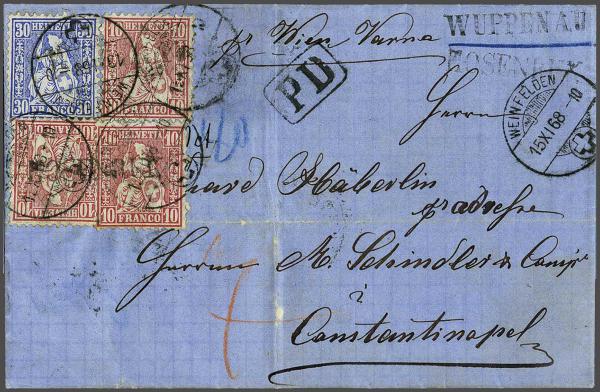 30 HELVETIA 30
FRANCO
10 HELVETIA 10
FRANCO
10 HELVETIA 10
FRANCO
10 10
10 FRANCO 10
WUPPENAU
pr Wien Varna
PD
Herrn
WEINFELDEN
15 XI 68 - 10
Häberlin
pr adresse
Herren M. Schindler & Comp
à
Constantinopel